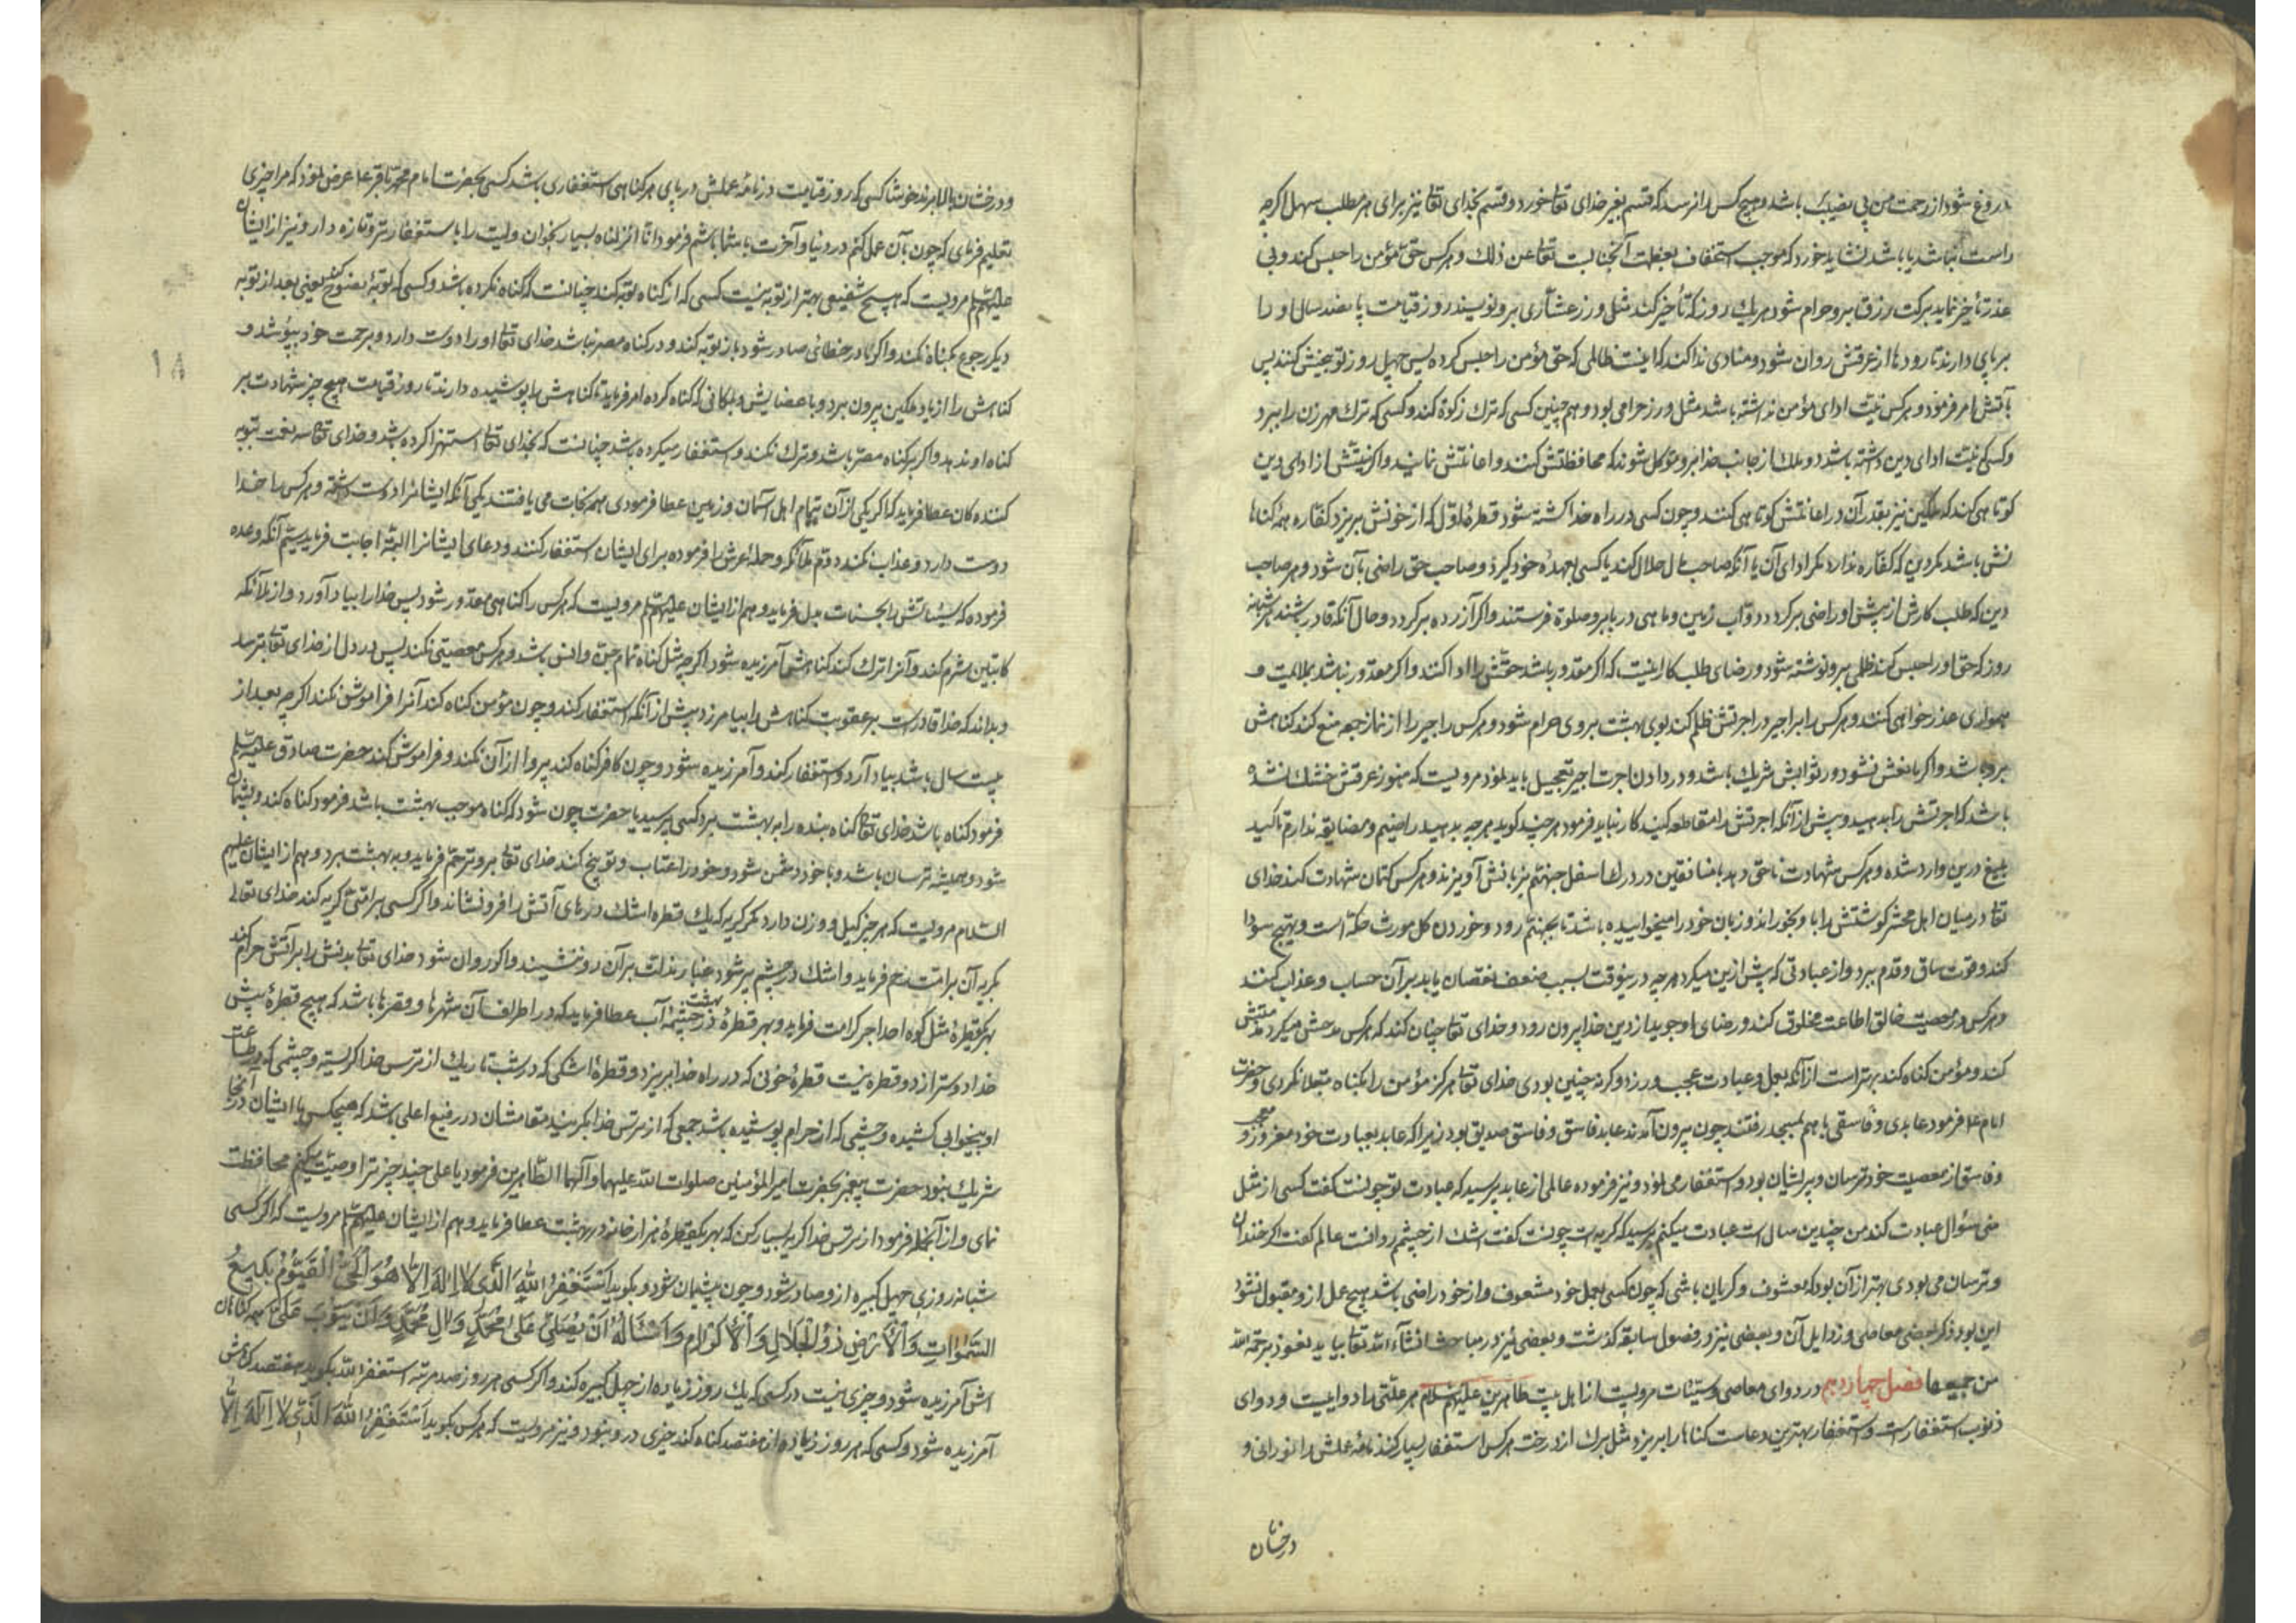 دروغ شود از رحمت من بی نصیب باشد و هیچ کس را نرسد که قسم بغیر خدای تعالی خورد و قسم بخدای تعالی نیز برای هر مطلب سهل اگرچه
راست باشد یا نباشد نشاید خورد که موجب استخفاف بعظمت آنجنابست تعالی عن ذلک و هر کس حق مؤمن را حبس کند و بی
عذر تأخیر نماید برکت رزق بر او حرام شود و هر یک روز که تأخیر کند مثل وزر عشاری بر او نویسند و روز قیامت پانصد سال او را
بر پای دارند تا رودها از عرقش روان شود و منادی ندا کند که اینست ظالمی که حق مؤمن را حبس کرده پس چهل روز توبیخش کنند پس
بآتش امر فرمود و هر کس نیت ادای مؤمن نداشته باشد مثل وزر حرامی بود و هم چنین کسی که ترک زکوة کند و کسی که ترک مهر زن را ببرد
و کسی که نیت ادای دین داشته باشد دو ملک از جانب خدا بر او موکل شوند که محافظتش کنند و اعانتش نمایند و اگر نیتش از ادای دین
کوتاهی کند ملکین نیز بقدر آن در اعانتش کوتاهی کنند و چون کسی در راه خدا کشته شود قطرهٔ اول که از خونش بریزد کفاره همهٔ گناها
نش باشد مگر دین که کفاره ندارد مگر ادای آن یا آنکه صاحب مال حلال کند یا کسی بعهدهٔ خود گیرد و صاحب حق راضی بآن شود و هر صاحب
دین که طلب کارش از پیش او راضی برگردد دواب زمین و ماهی دریا بر او صلوة فرستند و اگر آزرده برگردد و حال آنکه قادر باشد هر شبانه
روز که حق او را حبس کند ظلمی بر او نوشته شود و رضای طلب کار اینست که اگر مقدور باشد حقش را ادا کند و اگر مقدور نباشد بملایمت و
همواری عذر خواهی کنند و هر کس را بر اجیر در اجرتش ظلم کند بوی بهشت بر وی حرام شود و هر کس اجیر را از نماز جمعه منع کند گناهش
برو باشد و اگر مانعش نشود در ثوابش شریک باشد و در دادن اجرت اجیر تعجیل باید نمود مرویست که هنوز عرقش خشک نشده
باشد که اجرتش را بدهید و پیش از آنکه اجرتش را مقاطعه کنید کار نباید فرمود هر چند گوید هر چه بدهید راضیم و مضایقه ندارم تاکید
بلیغ درین وارد شده و هر کس شهادت ناحق دهد با منافقین در درک اسفل جهنم بزبانش آویزند و هر کس کتمان شهادت کند خدای
تعالی در میان اهل محشر گوشتش را باو بخوراند و زبان خود را میخواییده باشد تا بجهنم رود و خوردن گل مورث حکه است و تهییج سودا
کند و قوت ساق و قدم ببرد و از عبادتی که پیش ازین میکرد هر چه درینوقت بسبب ضعف نقصان یابد بر آن حساب و عذاب کنند
و هر کس در معصیت خالق اطاعت مخلوق کند و رضای او جوید از دین خدا بیرون رود و خدای تعالی چنان کند که هر کس مدحش میکرد مذمتش
کند و مؤمن گناه کند بهتر است از آنکه بعمل و عبادت عجب ورزد و گرنه چنین بودی خدای تعالی هرگز مؤمن را بگناه مبتلا نکردی و حضرت
امام ع فرمود عابدی و فاسقی با هم بمسجد رفتند چون بیرون آمدند عابد فاسق و فاسق صدیق بود زیرا که عابد بعبادت خود مغرور و معجب
و فاسق از معصیت خود ترسان و پریشان بود و استغفار می نمود و نیز فرموده عالمی از عابد پرسید که عبادت تو چونست گفت کسی از مثل
منی سؤال عبادت کند من چندین سال است عبادت میکنم پرسید که گریه ات چونست گفت اشک از چشمم روانست عالم گفت اگر خندان
و ترسان می بودی بهتر از آن بود که مشعوف و گریان باشی که چون کسی بعمل خود مشعوف و از خود راضی باشد هیچ عمل ازو مقبول نشود
این بود ذکر بعضی معاصی و رذایل آن و بعضی نیز در فصول سابقه گذشت و بعضی نیز در مباحث انشاء الله تعالی بیاید نعوذ برحمة الله
من جمیعها فصل چهاردهم در دوای معاصی و سیئات مرویست از اهل بیت طاهرین علیهم السلام هر علتی را دواییست و دوای
ذنوب استغفار است و استغفار بهترین دعاست گناها را بریزد مثل برک از درخت هر کس استغفار بسیار کند نامهٔ عملش را نورانی و
درخشان
و درخشان بالا برند خوشا کسی که روز قیامت در نامهٔ عملش در پای هر گناهی استغفاری باشد کسی بحضرت امام محمد باقر ع عرض نمود که مرا چیزی
تعلیم فرمای که چون بآن عمل کنم در دنیا و آخرت با شما باشم فرمود انا انزلناه بسیار بخوان و لبت را باستغفار تر و تازه دار و نیز از ایشان
علیهم السلام مرویست که هیچ شفیعی بهتر از توبه نیست کسی که از گناه توبه کند چنانست که گناه نکرده باشد و کسی که توبهٔ نصوح کند یعنی بعد از توبه
دیگر رجوع بگناه نکند و اگر نادر خطائی صادر شود باز توبه کند و در گناه مصر نباشد خدای تعالی او را دوست دارد و برحمت خود بپوشد و
گناهش را از یاد ملکین بیرون برد و باعضایش و بمکانی که گناه کرده امر فرماید تا گناهش را پوشیده دارند تا روز قیامت هیچ چیز شهادت بر
گناه او ندهد و اگر بر گناه مصر باشد و ترک نکند و استغفار میکرده باشد چنانست که بخدای تعالی استهزا کرده باشد و خدای تعالی سه نعمت بتوبه
کننده گان عطا فرماید که اگر یکی از آن بتمام اهل آسمان و زمین عطا فرمودی همه نجات می یافتند یکی آنکه ایشانرا دوست داشته و هر کس را خدا
دوست دارد عذاب نکند دوم ملائکه و حملهٔ عرش را فرموده برای ایشان استغفار کنند و دعای ایشانرا البته اجابت فرماید سیم آنکه وعده
فرموده که سیئاتش را بحسنات بدل فرماید و هم از ایشان علیهم السلام مرویست که هر کس را گناهی مقدور شود پس خدا را بیاد آورد و از ملائکه
کاتبین شرم کند و آنرا ترک کند گناهش آمرزیده شود اگر چه مثل گناه تمام جن و انس باشد و هر کس معصیتی نکند پس در دل از خدای تعالی بترسد
و بداند که خدا قادر است بر عقوبت گناهش را بیامرزد پیش از آنکه استغفار کند و چون مؤمن گناه کند آنرا فراموش نکند اگر چه بعد از
بیست سال باشد بیاد آرد و استغفار کند و آمرزیده شود و چون کافر گناه کند پروا از آن نکند و فراموش کند حضرت صادق علیه السلام
فرمود گناه باشد خدای تعالی گناه بنده را به بهشت برد کسی پرسید یا حضرت چون شود که گناه موجب بهشت باشد فرمود گناه کند و پشیمان
شود و همیشه ترسان باشد و با خود دشمن شود و خود را عتاب و توبیخ کند خدای تعالی برو ترحم فرماید و به بهشت برد و هم از ایشان علیهم
السلام مرویست که هر چیز کیل و وزن دارد مگر گریه که یک قطره اشک دریای آتش را فرو نشاند و اگر کسی بر امتی گریه کند خدای تعالی
بگریه آن بر امت رحم فرماید و اشک در چشم پر شود غبار مذلت بر آن رو ننشیند و اگر روان شود خدای تعالی بدنش را بر آتش حرام کند
بهر قطرهٔ مثل کوه احد اجر کرامت فرماید و بهر قطرهٔ در بهشت چشمهٔ آب عطا فرماید که در اطراف آن شهرها و قصرها باشد که هیچ قطرهٔ پیش
خدا دوستر از دو قطره نیست قطرهٔ خونی که در راه خدا بریزد و قطرهٔ اشکی که در شب تاریک از ترس خدا گریسته و چشمی که در طاعت
او بیخوابی کشیده و چشمی که از حرام پوشیده باشد جمعی که از ترس خدا بگریند مقامشان در رفیع اعلی باشد که هیچکس با ایشان در آنجا
شریک نبود حضرت پیغمبر بحضرت امیر المؤمنین صلوات الله علیهما و آلهما الطاهرین فرمود یا علی چند چیز ترا وصیت میکنم محافظت
نمای و از آنجمله فرمود از ترس خدا گریه بسیار کن که بهر یکقطرهٔ هزار خانه در بهشت عطا فرماید و هم از ایشان علیهم السلام مرویست که اگر کسی
شبانه روزی چهل کبیره ازو صادر شود و چون پشیمان شود و بگوید اَسْتَغْفِرُ اللّٰهَ الَّذی لا اِلٰهَ اِلّا هُوَ الْحَیُّ الْقَیُّومُ بَدیعُ
السَّمٰواتِ وَالْاَرْضِ ذُو الْجَلالِ وَالْاِکْرامِ وَاَسْئَلُهُ اَنْ یُصَلِّیَ عَلیٰ مُحَمَّدٍ وَآلِ مُحَمَّدٍ وَاَنْ یَتُوبَ عَلَیَّ همه گناهان
اش آمرزیده شود و چیزی نیست در کسی که یک روز زیاده از چهل کبیره کند و اگر کسی هر روز صد مرتبه استغفر الله بگوید هفتصد گناهش
آمرزیده شود و کسی که هر روز زیاده از هفتصد گناه کند چیزی درو نبود و نیز مرویست که هر کس بگوید اَسْتَغْفِرُ اللّٰهَ الَّذی لا اِلٰهَ اِلّا
۱۸